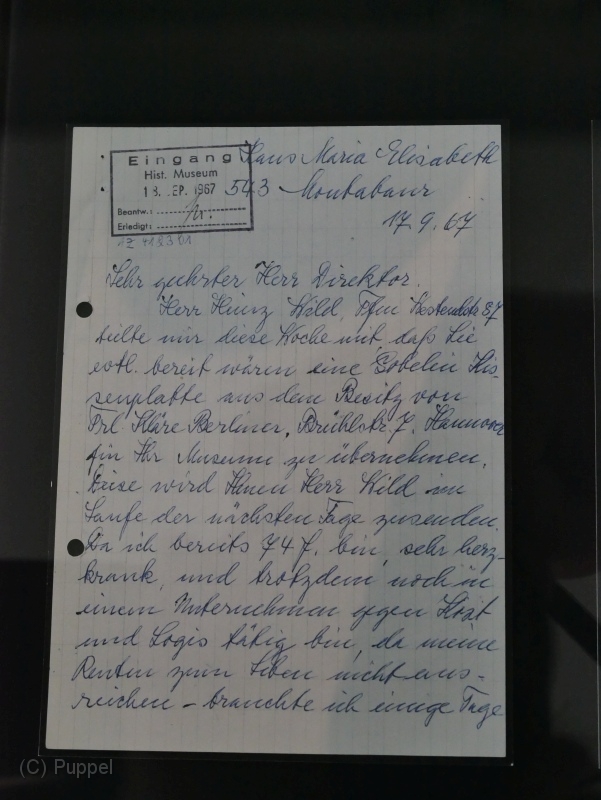 Eingang
Hist. Museum
18. SEP. 1967
Beantw.:
Erledigt:
Haus Maria Elisabeth
543 Montabaur
17.9.67
Sehr geehrter Herr Direktor.
Herr Heinz Wild, Ffm
teilte mir diese Woche mit, daß Sie
evtl. bereit wären eine Gobelin Kis-
senplatte aus dem Besitz von
Frl Kläre Berliner, Brühlstr. 7, Hannover
für Ihr Museum zu übernehmen.
Diese wird Ihnen Herr Wild im
Laufe der nächsten Tage zusenden.
Da ich bereits 74 J. bin, sehr herz-
krank, und trotzdem noch in
einem Unternehmen gegen Kost
und Logis tätig bin, da meine
Renten zum Leben nicht aus-
reichen – brauchte ich einige Tage
(C) Puppel